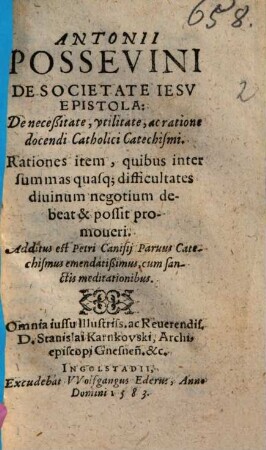 658.
2
ANTONII
POSSEVINI
DE SOCIETATE IESV
EPISTOLA:
De neceßitate, vtilitate, ac ratione
docendi Catholici Catechismi.
Rationes item, quibus inter
summas quasq; difficultates
diuinum negotium de-
beat & possit pro-
moueri.
Additus est Petri Canisij Paruus Cate-
chismus emendatißimus, cum san-
ctis meditationibus.
Omnia iussu Illustriss. ac Reuerendiss.
D. Stanislai Karnkovski, Archi-
episcopi Gnesneñ. &c.
INGOLSTADII,
Excudebat VVolfgangus Ederus, Anno
Domini 1583.